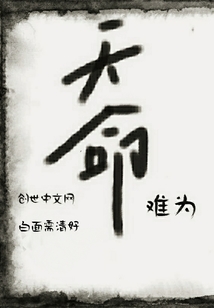 天命
难为
创世中文网
白面需清好